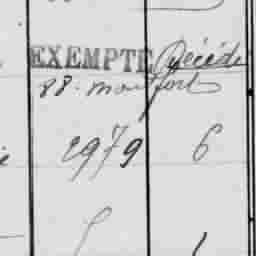 EXEMPTÉ Décédé
88. Montfort
2979 6